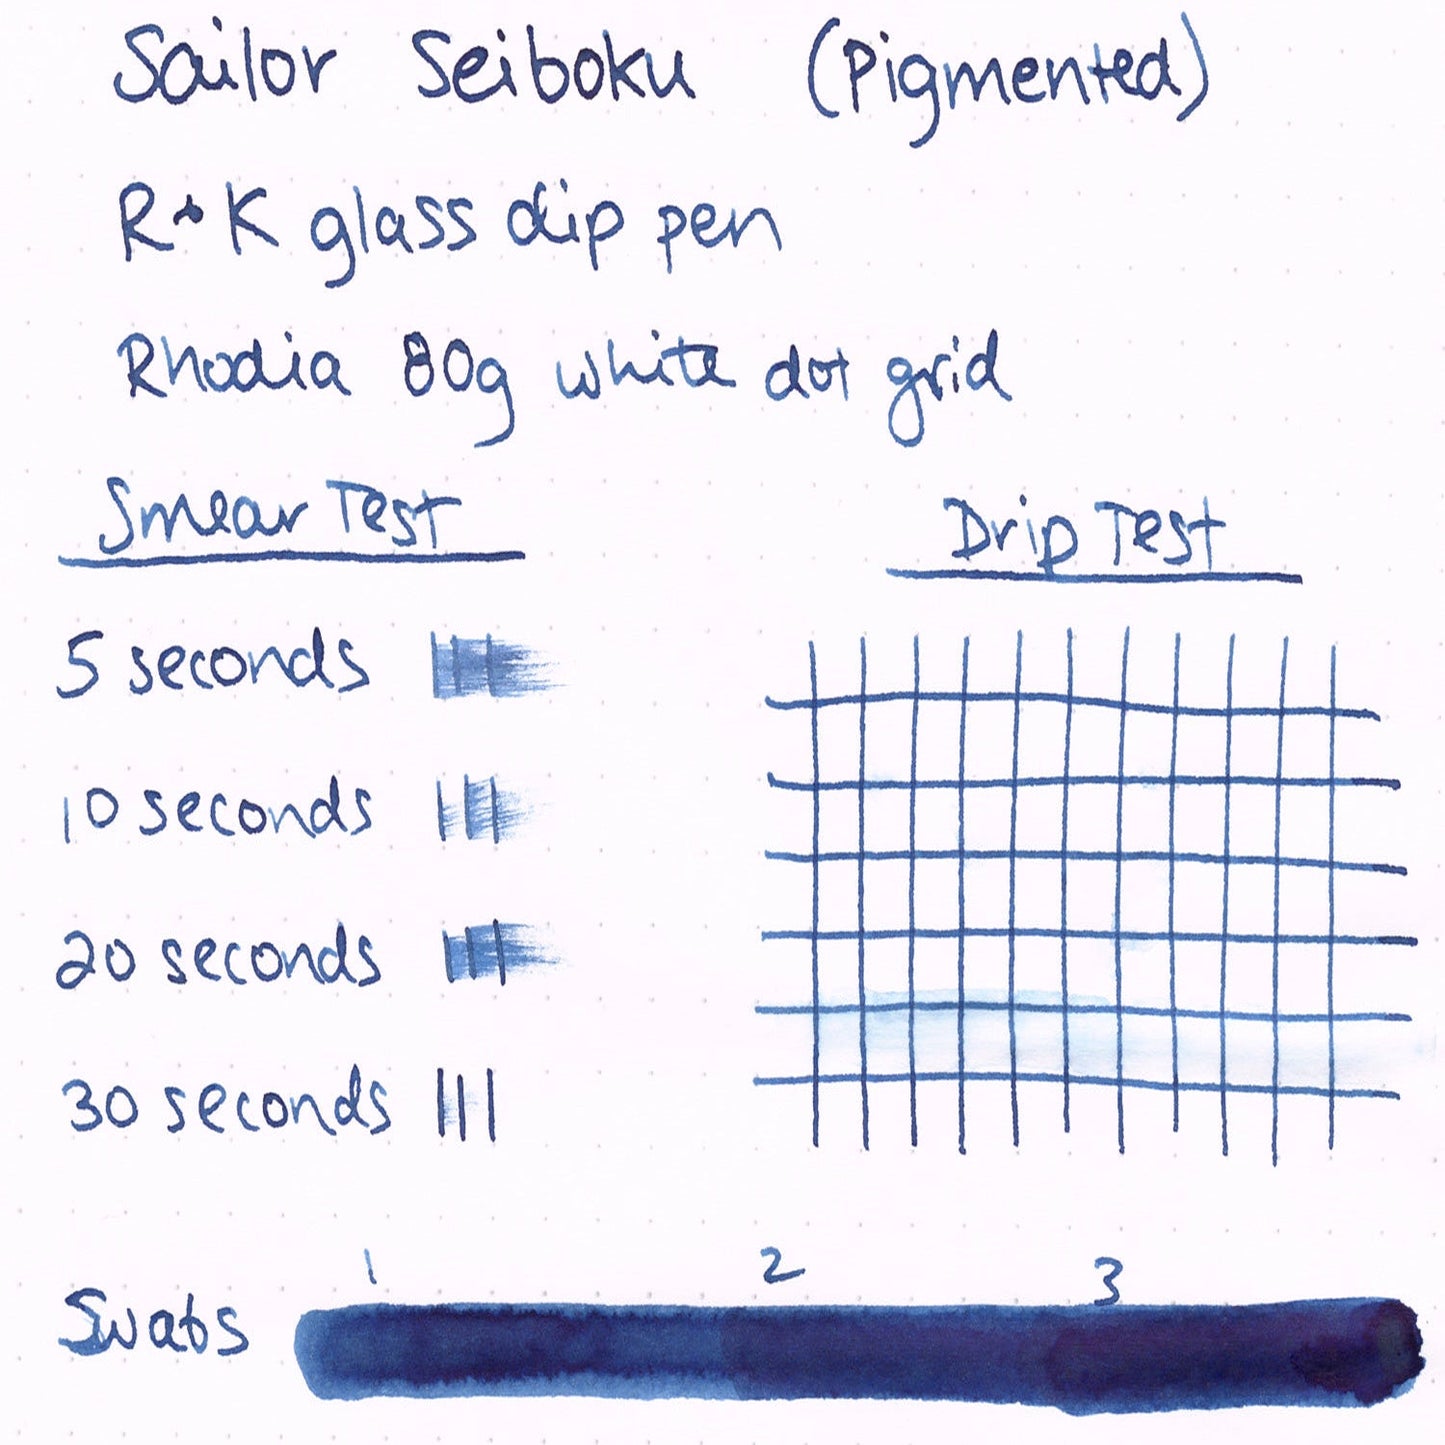 Sailor Seiboku (Pigmented)
R+K glass dip pen
Rhodia 80g white dot grid
Smear Test
Drip Test
5 seconds
10 seconds
20 seconds
30 seconds
1 2 3
Swabs